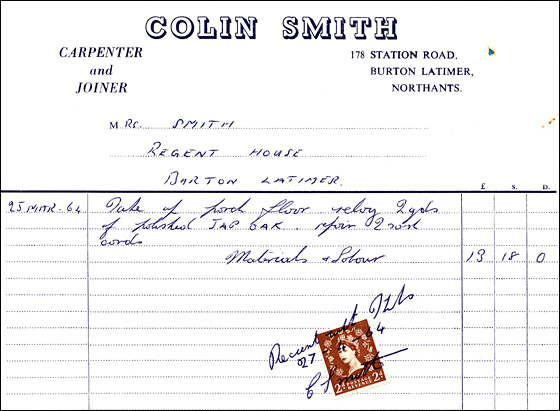 COLIN SMITH
CARPENTER
and
JOINER
178 STATION ROAD,
BURTON LATIMER,
NORTHANTS.
MRS. SMITH
REGENT HOUSE
BARTON LATIMER.
£ S. D.
25 MAR. 64 Take up porch floor relay 2 yds
of polished JAP OAK. repair 2 sash
cords
Materials & Labour 13 18 0
Received with Thanks
27 - 4 - 64
C Smith
2D POSTAGE REVENUE 2D